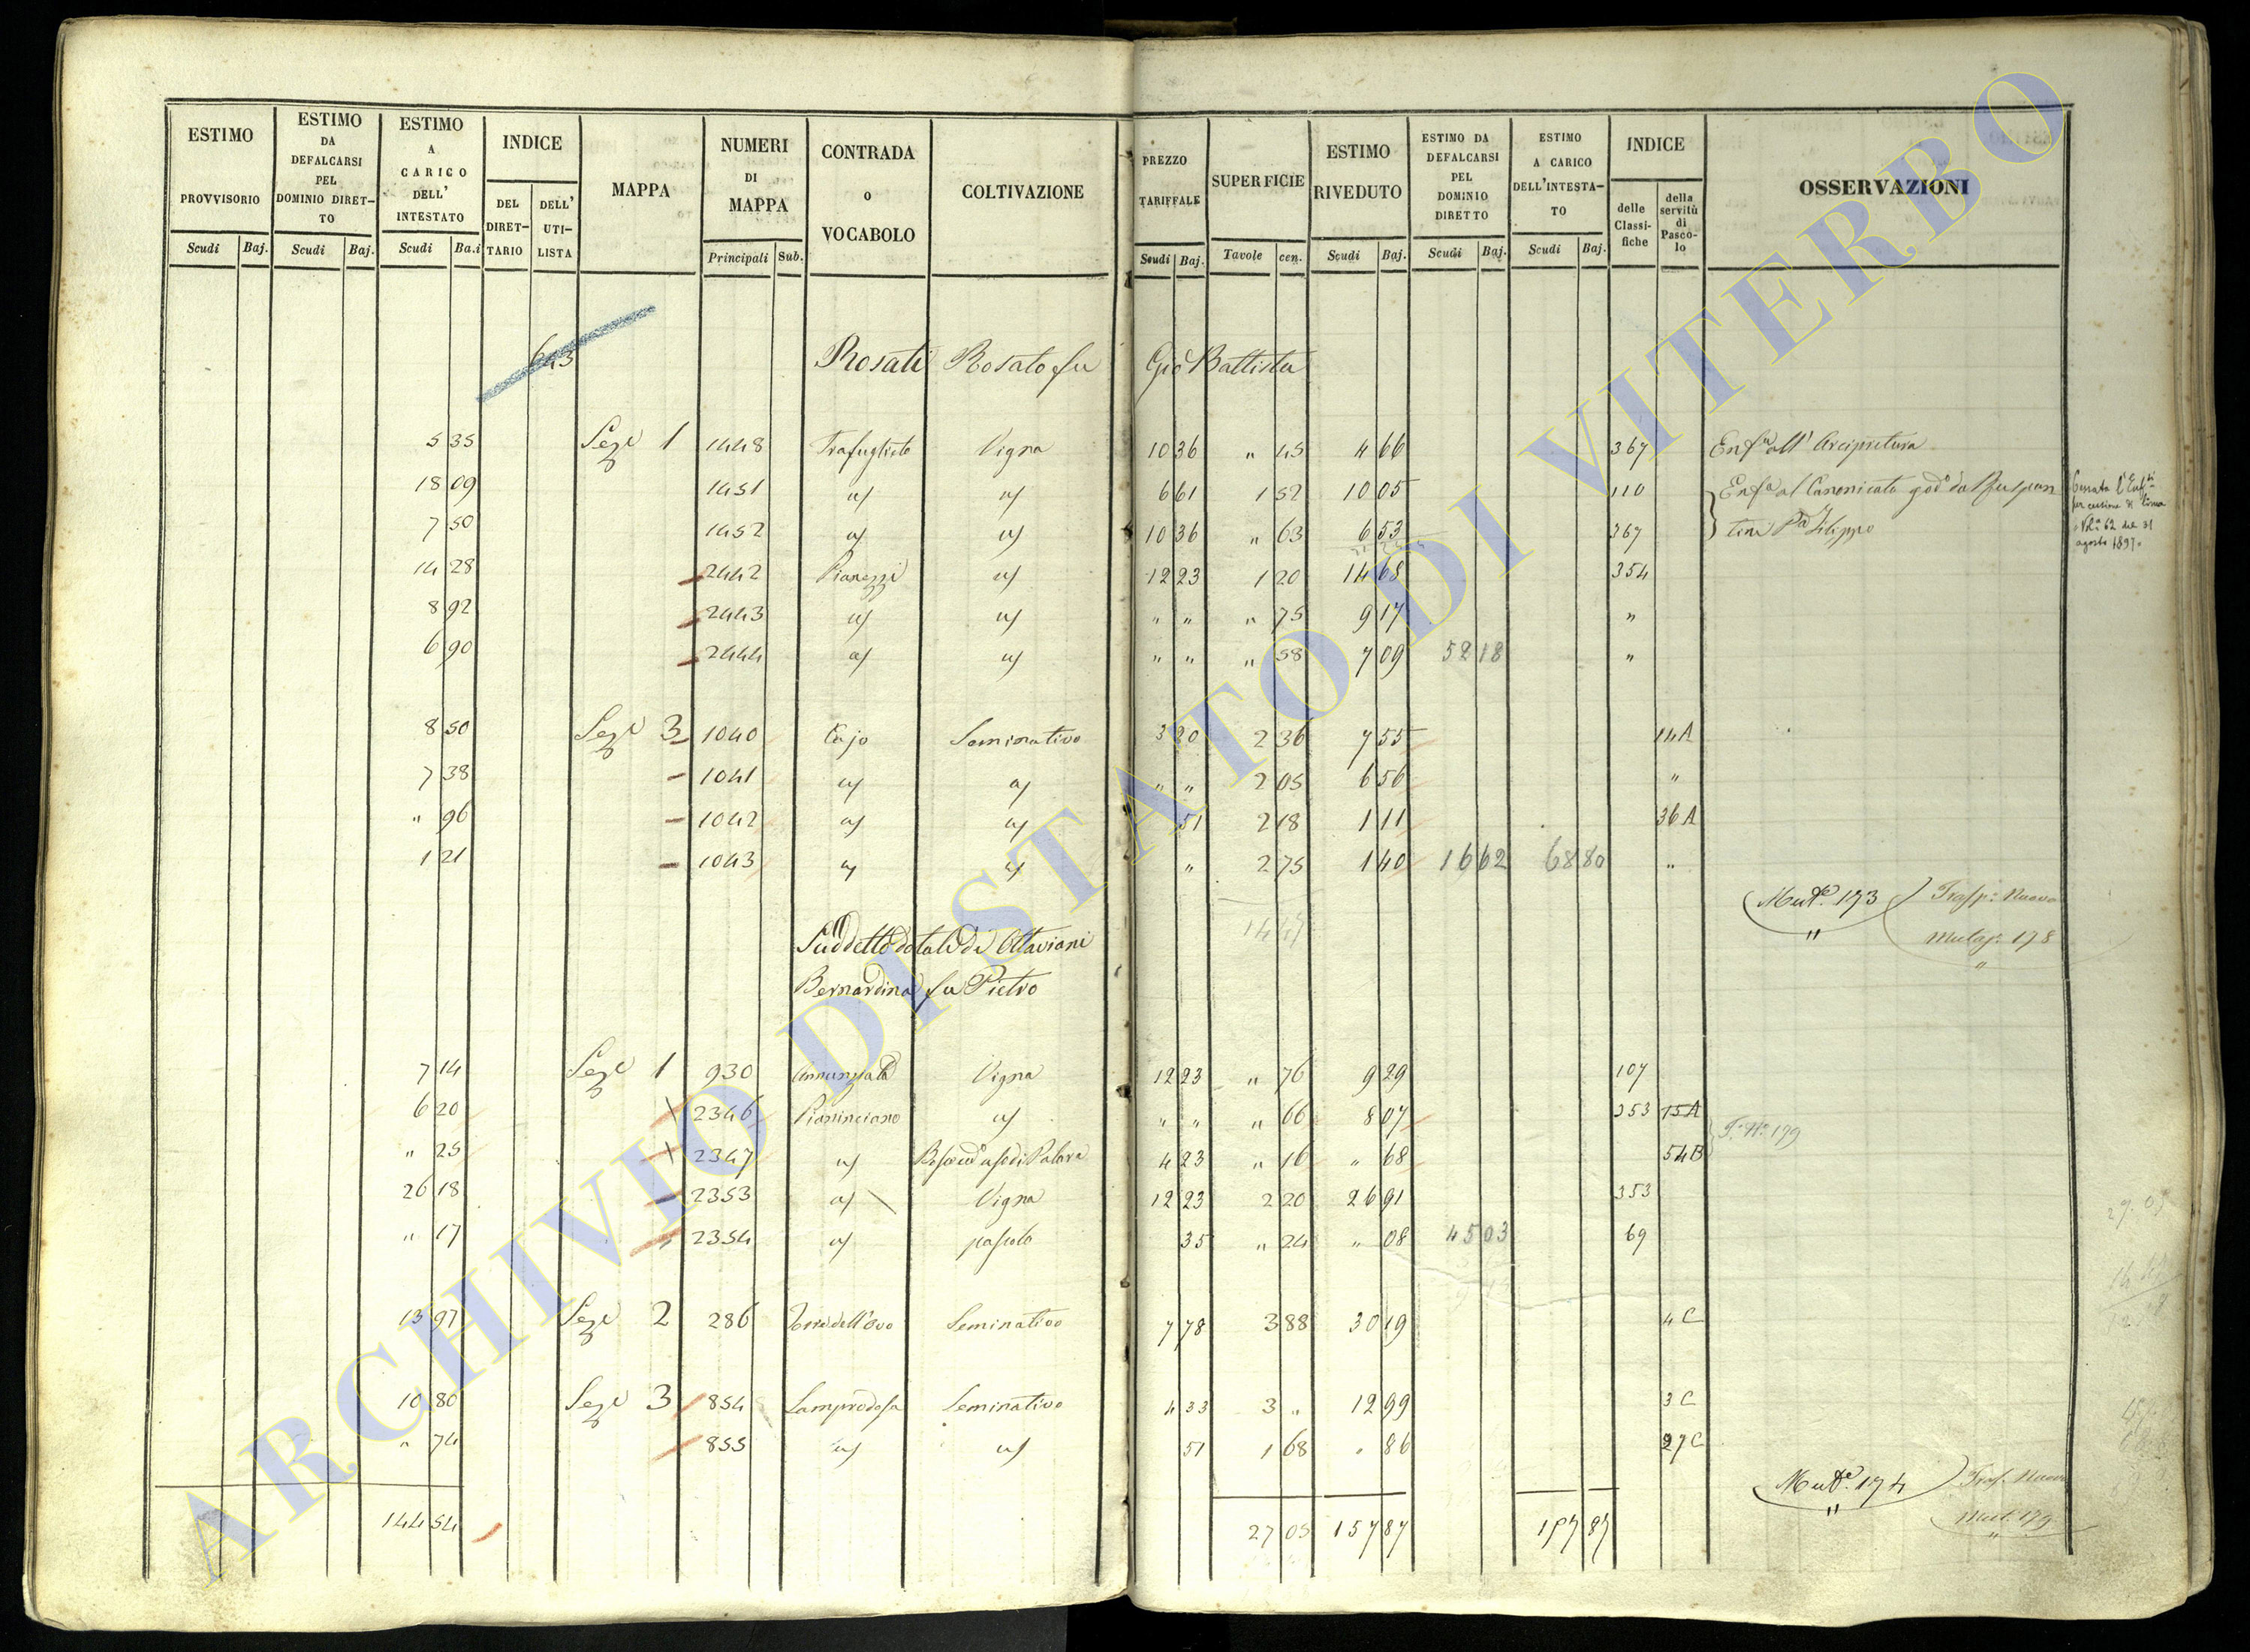 ESTIMO PROVVISORIO Scudi Baj.
ESTIMO DA DEFALCARSI PEL DOMINIO DIRET-TO Scudi Baj.
ESTIMO A CARICO DELL' INTESTATO Scudi Ba.i
INDICE DEL DIRET-TARIO DELL' UTI-LISTA
MAPPA
NUMERI DI MAPPA Principali Sub.
CONTRADA o VOCABOLO
COLTIVAZIONE
PREZZO TARIFFALE Scudi Baj.
SUPERFICIE Tavole cen.
ESTIMO RIVEDUTO Scudi Baj.
ESTIMO DA DEFALCARSI PEL DOMINIO DIRETTO Scudi Baj.
ESTIMO A CARICO DELL'INTESTA-TO Scudi Baj.
INDICE delle Classi-fiche della servitù di Pasco-lo
OSSERVAZIONI
643 Rosati Rosato fu Gio Battista
5 35 Seze 1 1448 Vigna 10 36 " 45 4 66 367 Enfa all' Arcipretura
18 09 1451 a/ a/ 6 61 1 52 10 05 110 Enfa al Canonicato
7 50 1452 a/ a/ 10 36 " 63 6 53 367 Filippo
agosto 1897.
14 28 2442 Pianezzi a/ 12 23 1 20 14 68 354
8 92 2443 a/ a/ " " " 75 9 17 "
6 90 2444 a/ a/ " " " 58 7 09 52 18 "
8 50 Seze 3 1040 Cajo Seminativo 3 20 2 36 7 55 14A
7 38 1041 a/ a/ " " 2 05 6 56 "
" 96 1042 a/ a/ 51 2 18 1 11 36A
1 21 1043 a/ a/ " 2 75 1 40 16 62 68 80 "
Mute. 173 Trasp: Nuovo
" Mutaz. 178
Suddetto dotale di Ottaviani
Bernardina fu Pietro
7 14 Seze 1 930 Annunziata Vigna 12 23 " 76 9 29 107
6 20 2346 Pianinciano a/ " " " 66 8 07 353 15A
" 25 2347 a/ 4 23 " 16 " 68 54B
26 18 2353 a/ Vigna 12 23 2 20 26 91 353
" 17 2354 a/ pascolo 35 " 24 " 08 45 03 69
13 97 Seze 2 286 Torre dell'Ovo Seminativo 7 78 3 88 30 19 4C
10 80 Seze 3 854 Seminativo 4 33 3 " 12 99 3C
" 74 855 a/ a/ 51 1 68 " 86 27C
Mute. 174 Trasp. Nuovo
" Mut. 179
144 54 27 05 157 87 157 87
ARCHIVIO DI STATO DI VITERBO